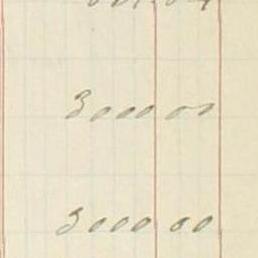 3000 00
3000 00